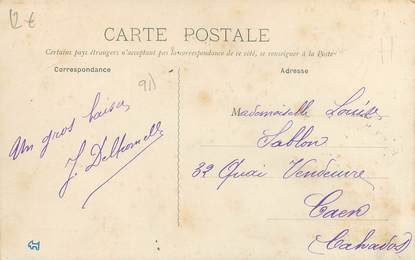 12 €
CARTE POSTALE
Certains pays étrangers n'acceptant pas la correspondance de ce côté, se renseigner à la Poste
Correspondance
Adresse
Un gros baiser
J.
Mademoiselle Louise
Sablon
32 Quai Vendeuvre
Caen
(Calvados)